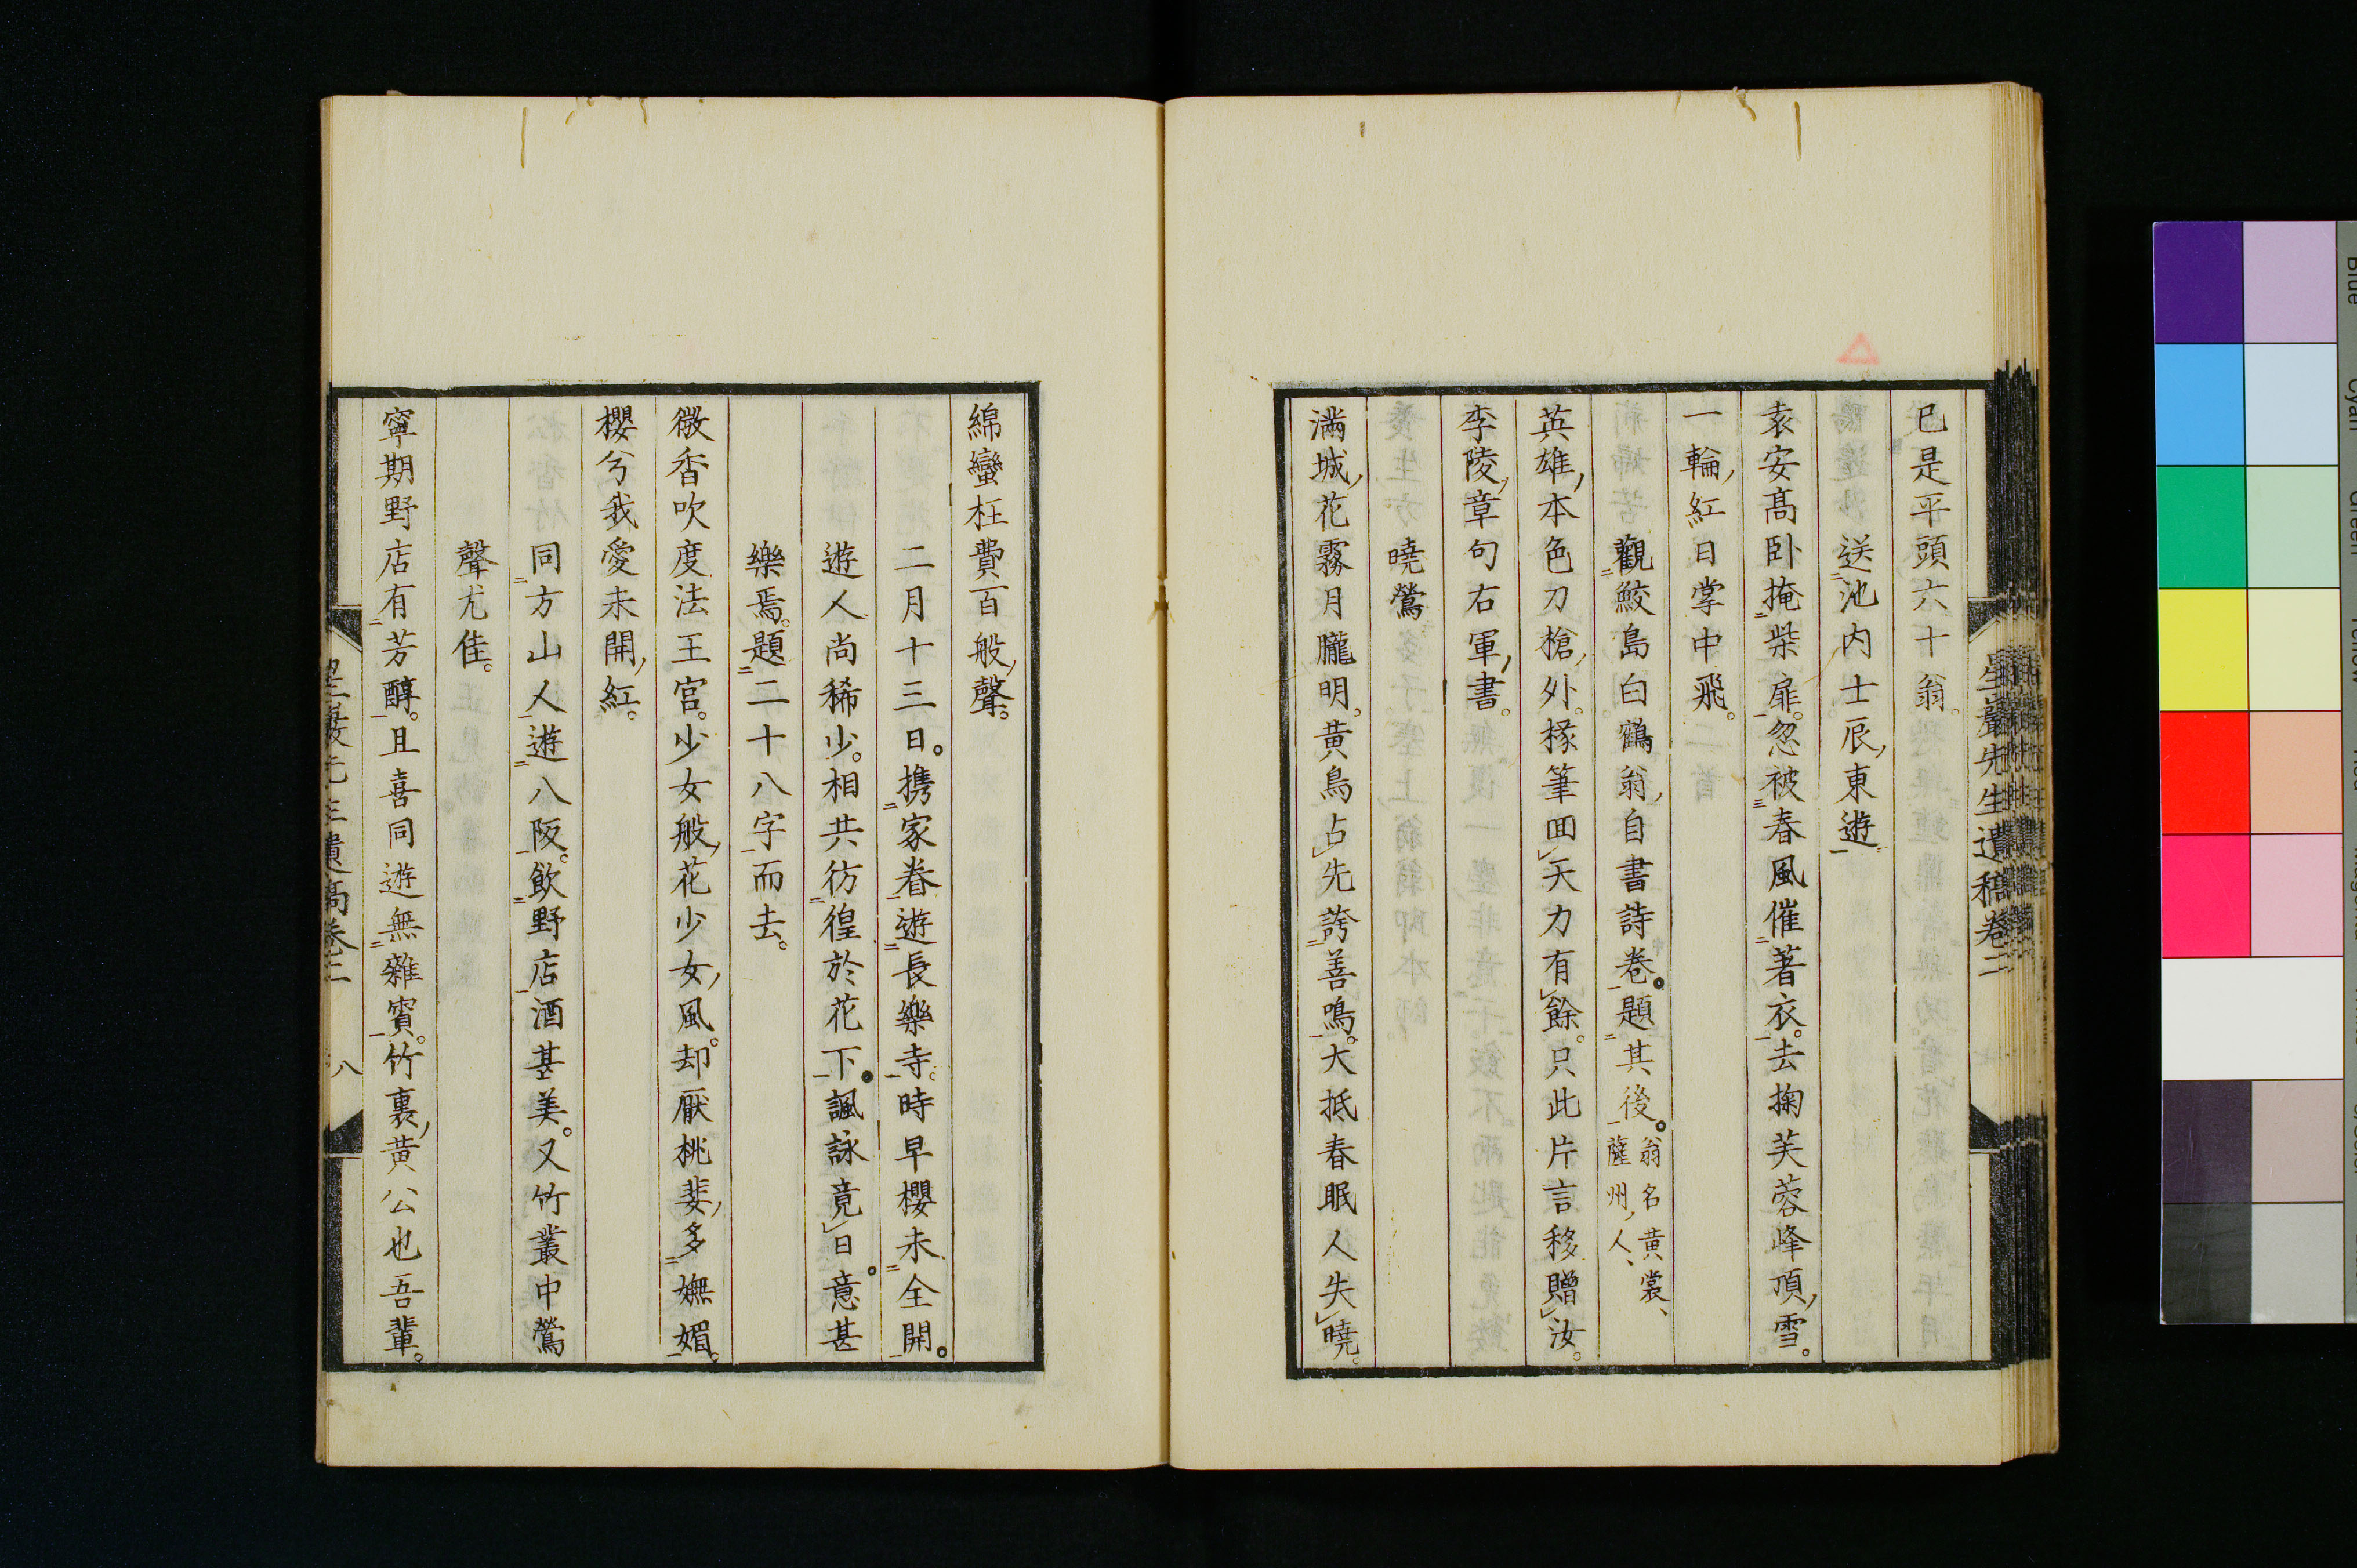 星巖先生遺稿卷二
已是平頭六十翁。
送池內士辰東遊
袁安高臥掩柴扉。忽被春風催著衣。去掬芙蓉峰頂雪。
一輪紅日掌中飛。
觀鮫島白鶴翁自書詩卷。題其後。翁名黃裳、薩州人、
英雄本色刀槍外。椽筆回天力有餘。只此片言移贈汝。
李陵章句右軍書。
曉鶯
滿城花霧月朧明。黃鳥占先誇善鳴。大抵春眠人失曉。
綿蠻枉費百般聲。
二月十三日。携家眷遊長樂寺。時早櫻未全開。
遊人尚稀少。相共彷徨於花下。諷詠竟日。意甚
樂焉。題二十八字而去。
微香吹度法王宮。少女般花少女風。却厭桃斐多嫵媚。
櫻兮我愛未開紅。
同方山人遊八阪。飲野店。酒甚美。又竹叢中鶯
聲尤佳。
寧期野店有芳醇。且喜同遊無雜賓。竹裏黃公也吾輩。
八